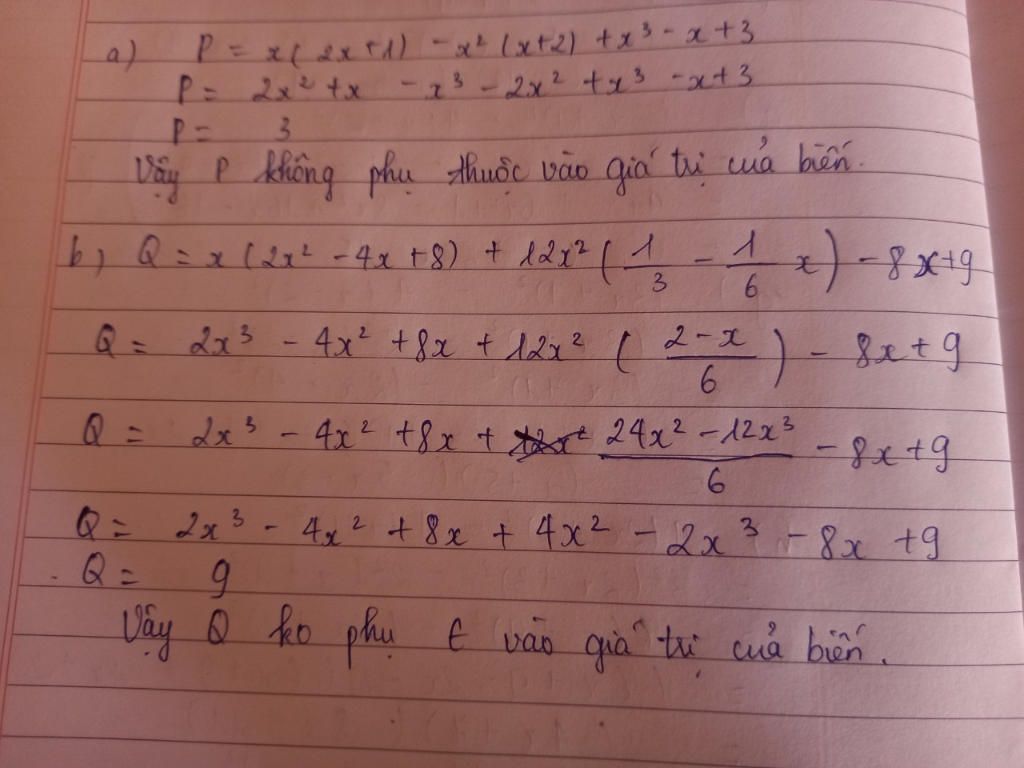 a) P = x(2x+1) - x² (x+2) + x³ - x + 3
P = 2x² + x - x³ - 2x² + x³ - x + 3
P = 3
Vậy P không phụ thuộc vào giá trị của biến.
b) Q = x (2x² - 4x + 8) + 12x² (1/3 - 1/6 x) - 8x + 9
Q = 2x³ - 4x² + 8x + 12x² ((2-x)/6) - 8x + 9
Q = 2x³ - 4x² + 8x + (24x² - 12x³)/6 - 8x + 9
Q = 2x³ - 4x² + 8x + 4x² - 2x³ - 8x + 9
Q = 9
Vậy Q ko phụ t vào giá trị của biến.